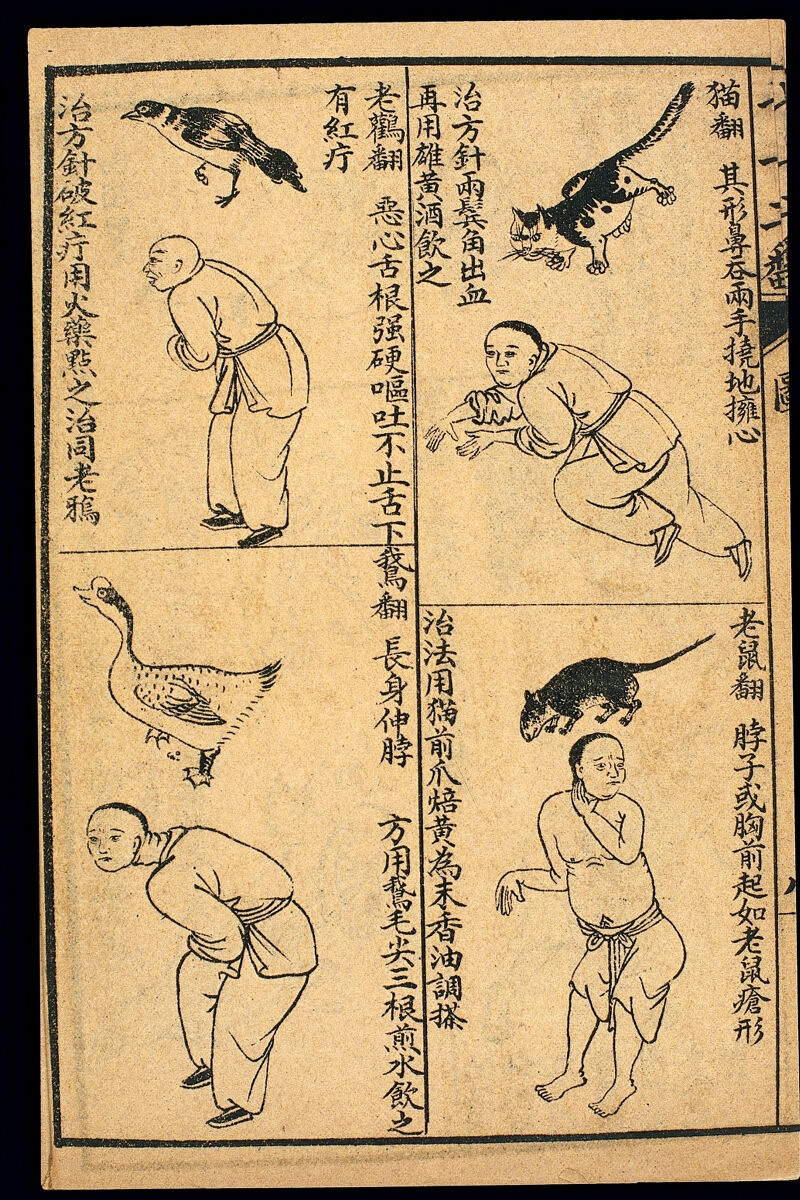 猫翻
其形鼻吞兩手撓地擁心
治方針兩鬂角出血
再用雄黃酒飲之
老鼠翻
脖子或胸前起如老鼠瘡形
治法用猫前爪焙黃為末香油調搽
老鸛翻
惡心舌根强硬嘔吐不止舌下
有紅疔
治方針破紅疔用火藥點之治同老鴉
鵝翻
長身伸脖
方用鵝毛尖三根煎水飲之